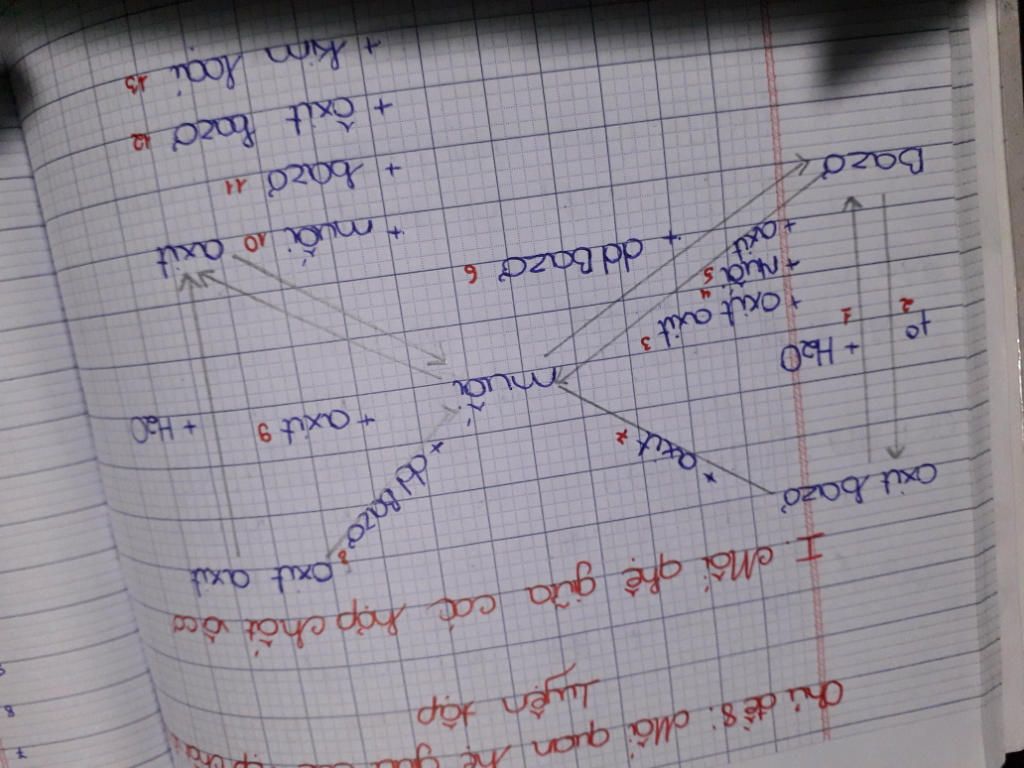 Chủ đề 8: Mối quan hệ giữa các
Luyện tập
I. Mối qhệ giữa các hợp chất vô cơ
oxit bazơ
oxit axit
+ axit
+ dd Bazơ 8
t° 2
+ H2O 1
muối
+ axit 9
+ H2O
+ oxit axit 3
+ muối 4
+ axit 5
+ dd Bazơ 6
Bazơ
axit
+ muối 10
+ bazơ 11
+ oxit bazơ 12
+ kim loại 13
7
8